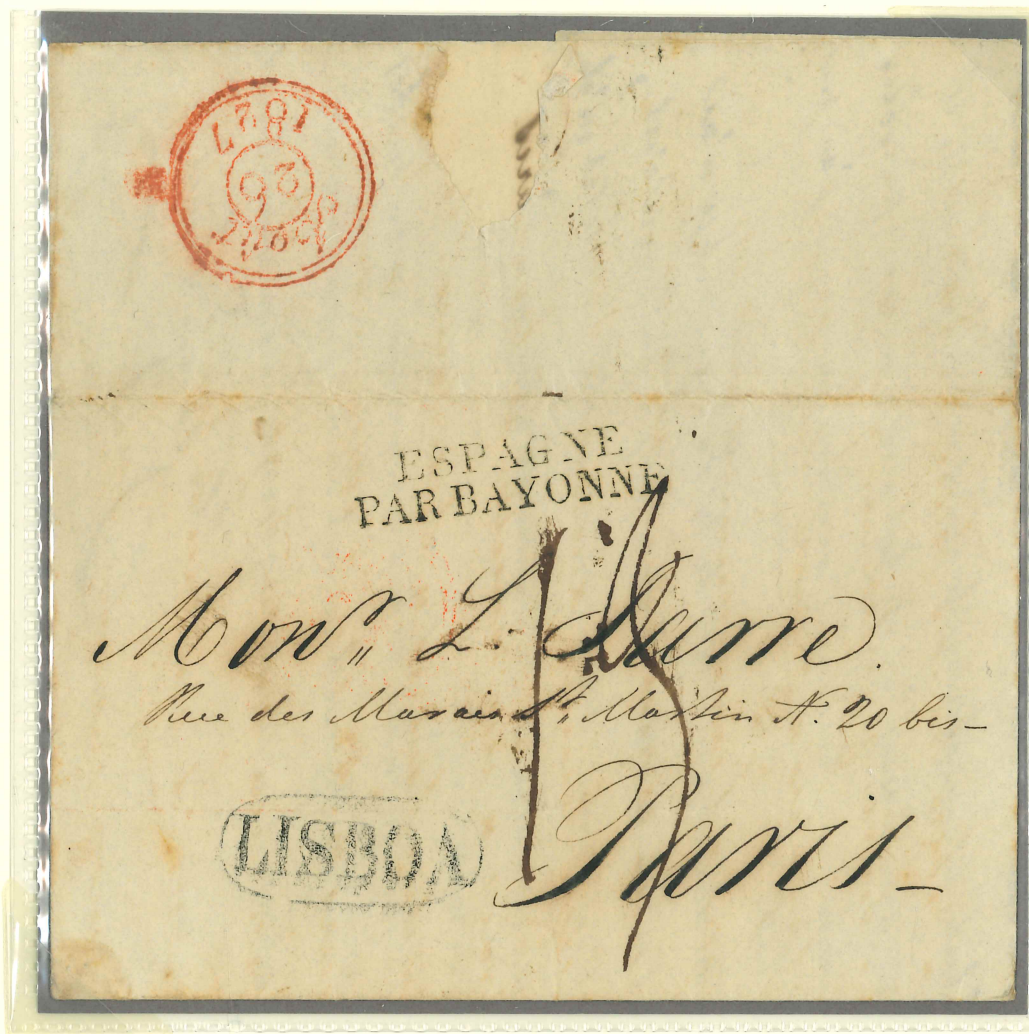 Avril
26
1827
ESPAGNE
PAR BAYONNE
Monr. L. Darre.
Rue des Marais St. Martin N. 20 bis—
Paris—
LISBOA